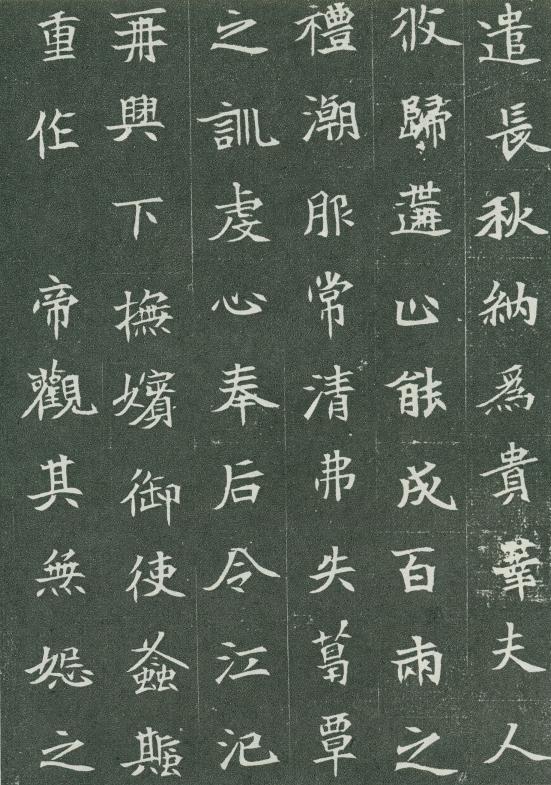 遣長秋納爲貴華夫人
攸歸遘止能成百兩之
禮潮服常清弗失葛覃
之訓虔心奉后令江汜
再興下撫嬪御使螽斯
重作 帝觀其無怨之